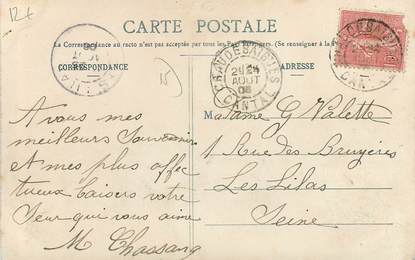 12t
CARTE POSTALE
La Correspondance au recto n'est pas acceptée par tous les Pays Etrangers. (Se renseigner à la
CORRESPONDANCE
ADRESSE
CHAUDESAIGUES
AOUT
CANTAL
LES LILAS
CHAUDESAIGUES
CANTAL
15
A vous mes
meilleurs Souvenirs
et mes plus affec
tueux baisers votre
Seur qui vous aime
M Chassang
Madame G Valette
1 Rue des Bruyères
Les Lilas
Seine